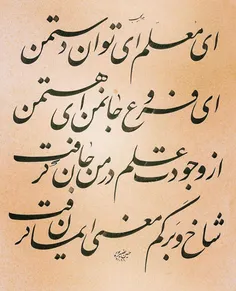 ای معلم ای توان دستمن
ای فروغ جانمن ای هستمن
از وجودت علم در من جان گرفت
شاخ و برگم معنی ایمان گرفت